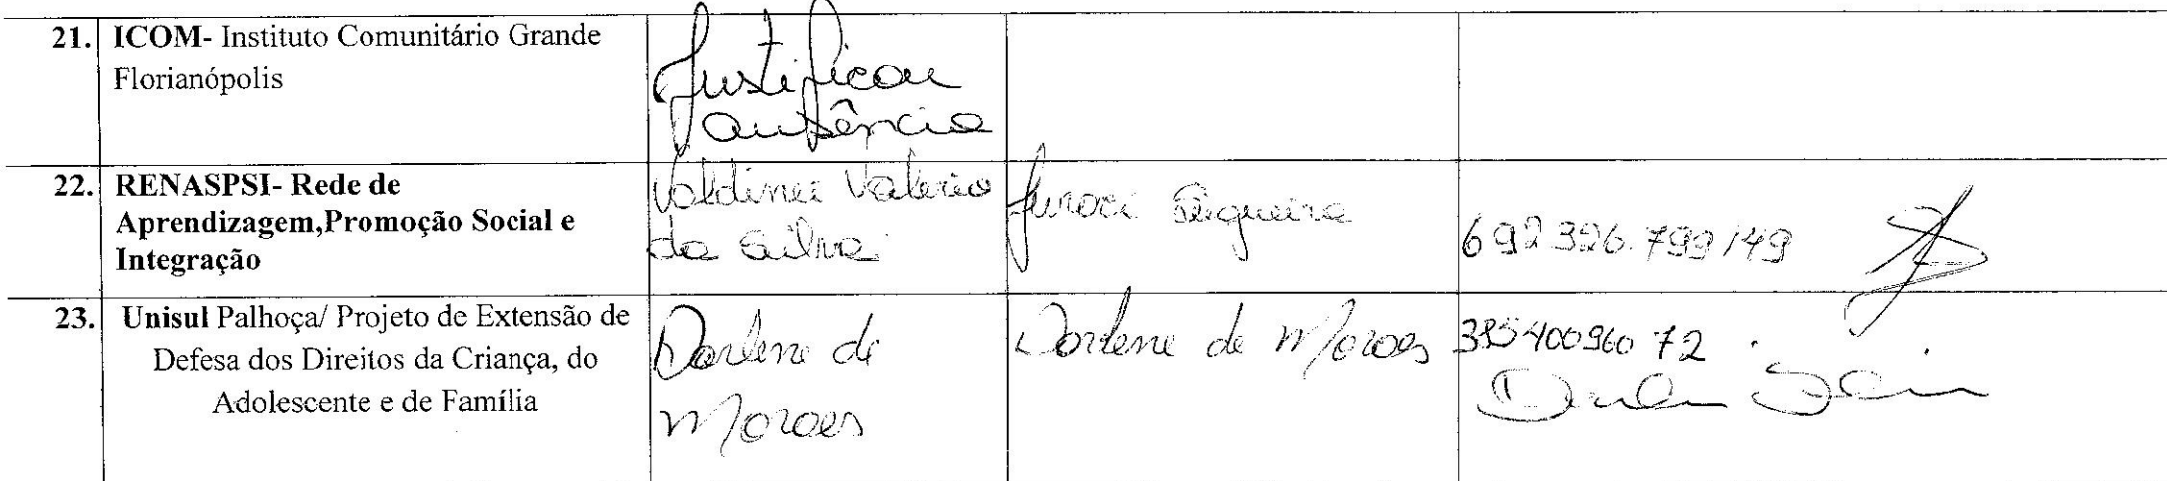 21. ICOM- Instituto Comunitário Grande
Florianópolis
Justificou
ausência
22. RENASPSI- Rede de
Aprendizagem,Promoção Social e
Integração
Valdinei Valerio
da Silva
Juroci Siqueira
692.326.799/49
23. Unisul Palhoça/ Projeto de Extensão de
Defesa dos Direitos da Criança, do
Adolescente e de Família
Darlene de
Moraes
Darlene de Moraes
38540096072